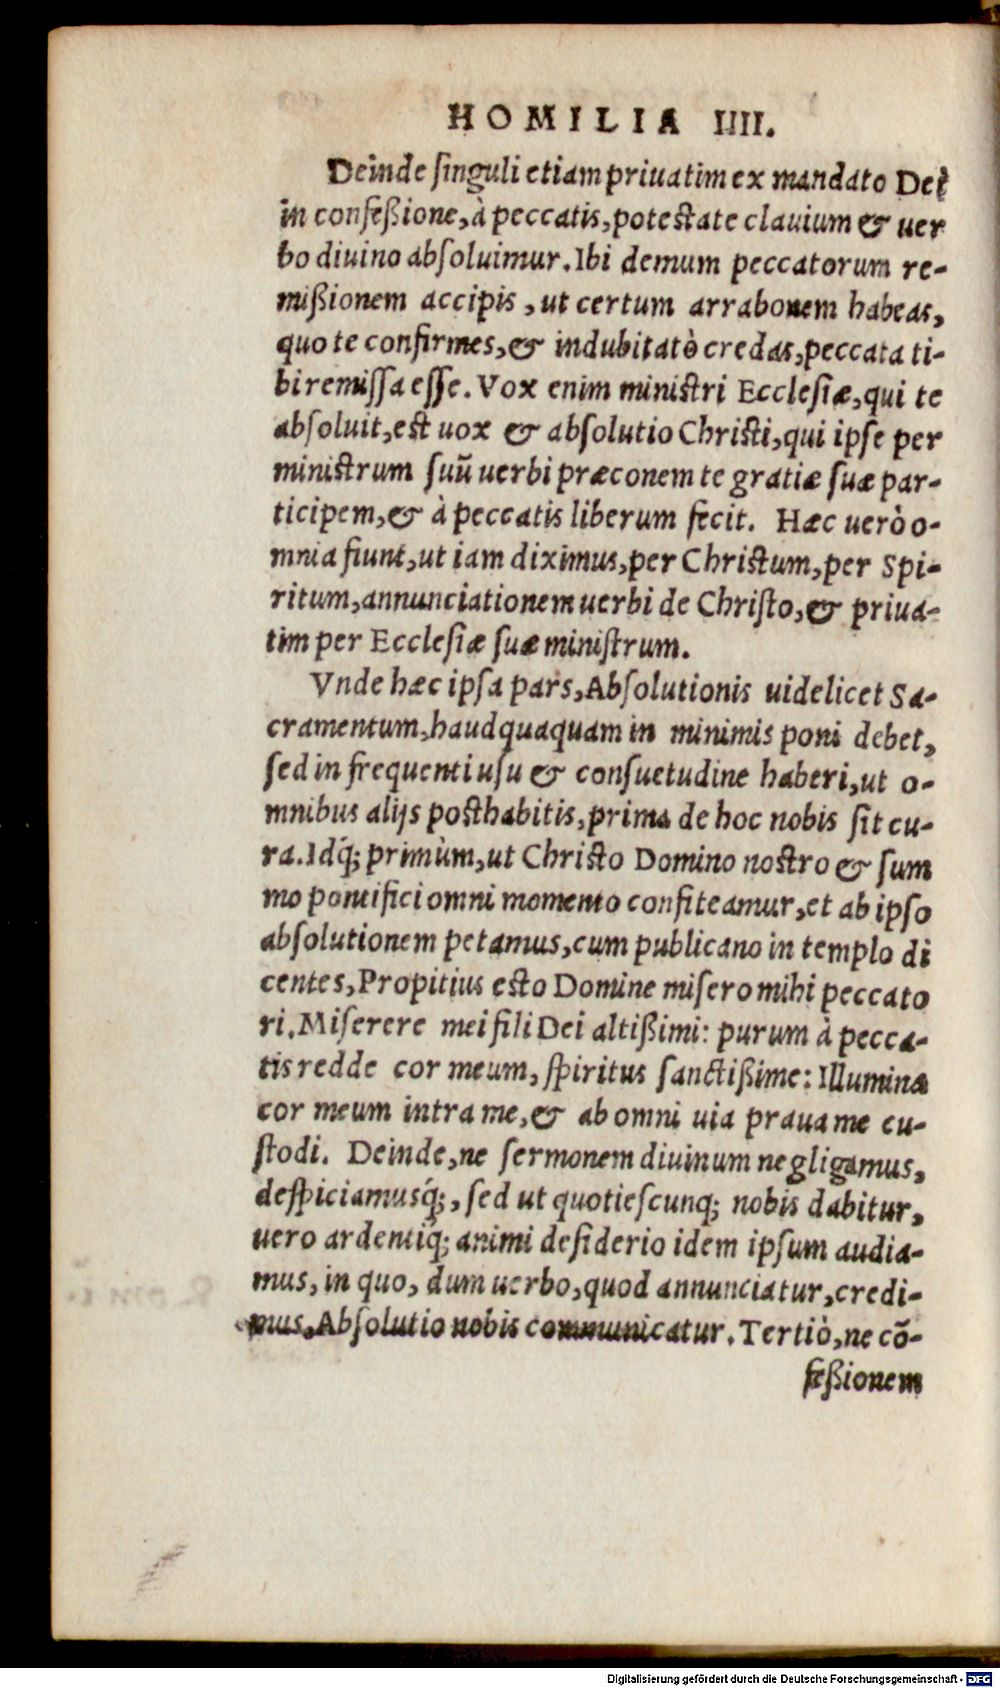 HOMILIA IIII.
Deinde singuli etiam priuatim ex mandato Dei
in confeßione, à peccatis, potestate clauium & uer
bo diuino absoluimur. Ibi demum peccatorum re-
mißionem accipis, ut certum arrabonem habeas,
quo te confirmes, & indubitatò credas, peccata ti-
bi remissa esse. Vox enim ministri Ecclesiæ, qui te
absoluit, est uox & absolutio Christi, qui ipse per
ministrum suũ uerbi præconem te gratiæ suæ par-
ticipem, & à peccatis liberum fecit. Hæc uerò o-
mnia fiunt, ut iam diximus, per Christum, per Spi-
ritum, annunciationem uerbi de Christo, & priua-
tim per Ecclesiæ suæ ministrum.
Vnde hæc ipsa pars, Absolutionis uidelicet Sa-
cramentum, haudquaquam in minimis poni debet,
sed in frequenti usu & consuetudine haberi, ut o-
mnibus alijs posthabitis, prima de hoc nobis sit cu-
ra. Idq́; primùm, ut Christo Domino nostro & sum
mo pontifici omni momento confiteamur, et ab ipso
absolutionem petamus, cum publicano in templo di
centes, Propitius esto Domine misero mihi peccato
ri. Miserere mei fili Dei altißimi: purum à pecca-
tis redde cor meum, spiritus sanctißime: Illumina
cor meum intra me, & ab omni uia praua me cu-
stodi. Deinde, ne sermonem diuinum negligamus,
despiciamusq́;, sed ut quotiescunq; nobis dabitur,
uero ardentiq; animi desiderio idem ipsum audia-
mus, in quo, dum uerbo, quod annunciatur, credi-
mus, Absolutio nobis communicatur. Tertiò, ne cõ-
feßionem
Digitalisierung gefördert durch die Deutsche Forschungsgemeinschaft - DFG